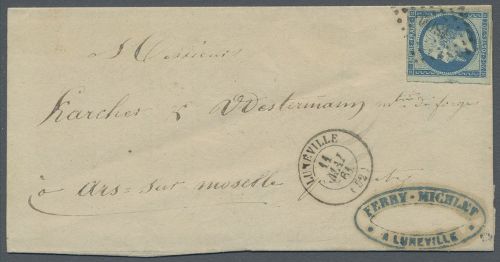 A Messieurs
Karcher & Westermann, mtres de forges
à Ars-sur-moselle
LUNÉVILLE
11
MAI
61
(52)
FERRY-MICHLET
A LUNÉVILLE